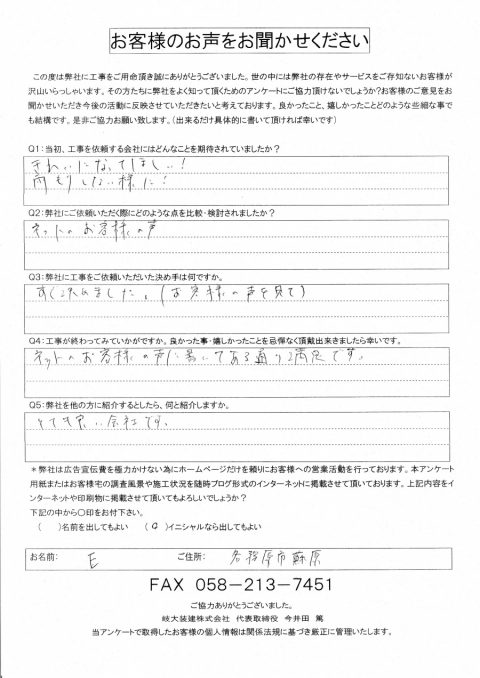 お客様のお声をお聞かせください
この度は弊社に工事をご用命頂き誠にありがとうございました。世の中には弊社の存在やサービスをご存知ないお客様が
沢山いらっしゃいます。その方たちに弊社をよく知って頂くためのアンケートにご協力頂けないでしょうか?お客様のご意見をお
聞かせいただき今後の活動に反映させていただきたいと考えております。良かったこと、嬉しかったことどのような些細な事で
も結構です。是非ご協力お願い致します。(出来るだけ具体的に書いて頂ければ幸いです)
Q1:当初、工事を依頼する会社にはどんなことを期待されていましたか?
きれいになってほしい!
雨もりしない様に!
Q2:弊社にご依頼いただく際にどのような点を比較・検討されましたか?
ネットのお客様の声
Q3:弊社に工事をご依頼いただいた決め手は何ですか。
すぐ決めました。(お客様の声を見て)
Q4:工事が終わってみていかがですか。良かった事・嬉しかったことを忌憚なく頂戴出来きましたら幸いです。
ネットのお客様の声に書いてある通り満足です。
Q5:弊社を他の方に紹介するとしたら、何と紹介しますか。
とても良い会社です。
*弊社は広告宣伝費を極力かけない為にホームページだけを頼りにお客様への営業活動を行っております。本アンケート
用紙またはお客様宅の調査風景や施工状況を随時ブログ形式のインターネットに掲載させて頂いております。上記内容をイ
ンターネットや印刷物に掲載させて頂いてもよろしいでしょうか?
下記の中から〇印をお付下さい。
( )名前を出してもよい (○)イニシャルなら出してもよい
お名前: E ご住所: 各務原市蘇原
FAX 058-213-7451
ご協力ありがとうございました。
岐大装建株式会社 代表取締役 今井田 篤
当アンケートで取得したお客様の個人情報は関係法規に基づき厳正に管理いたします。